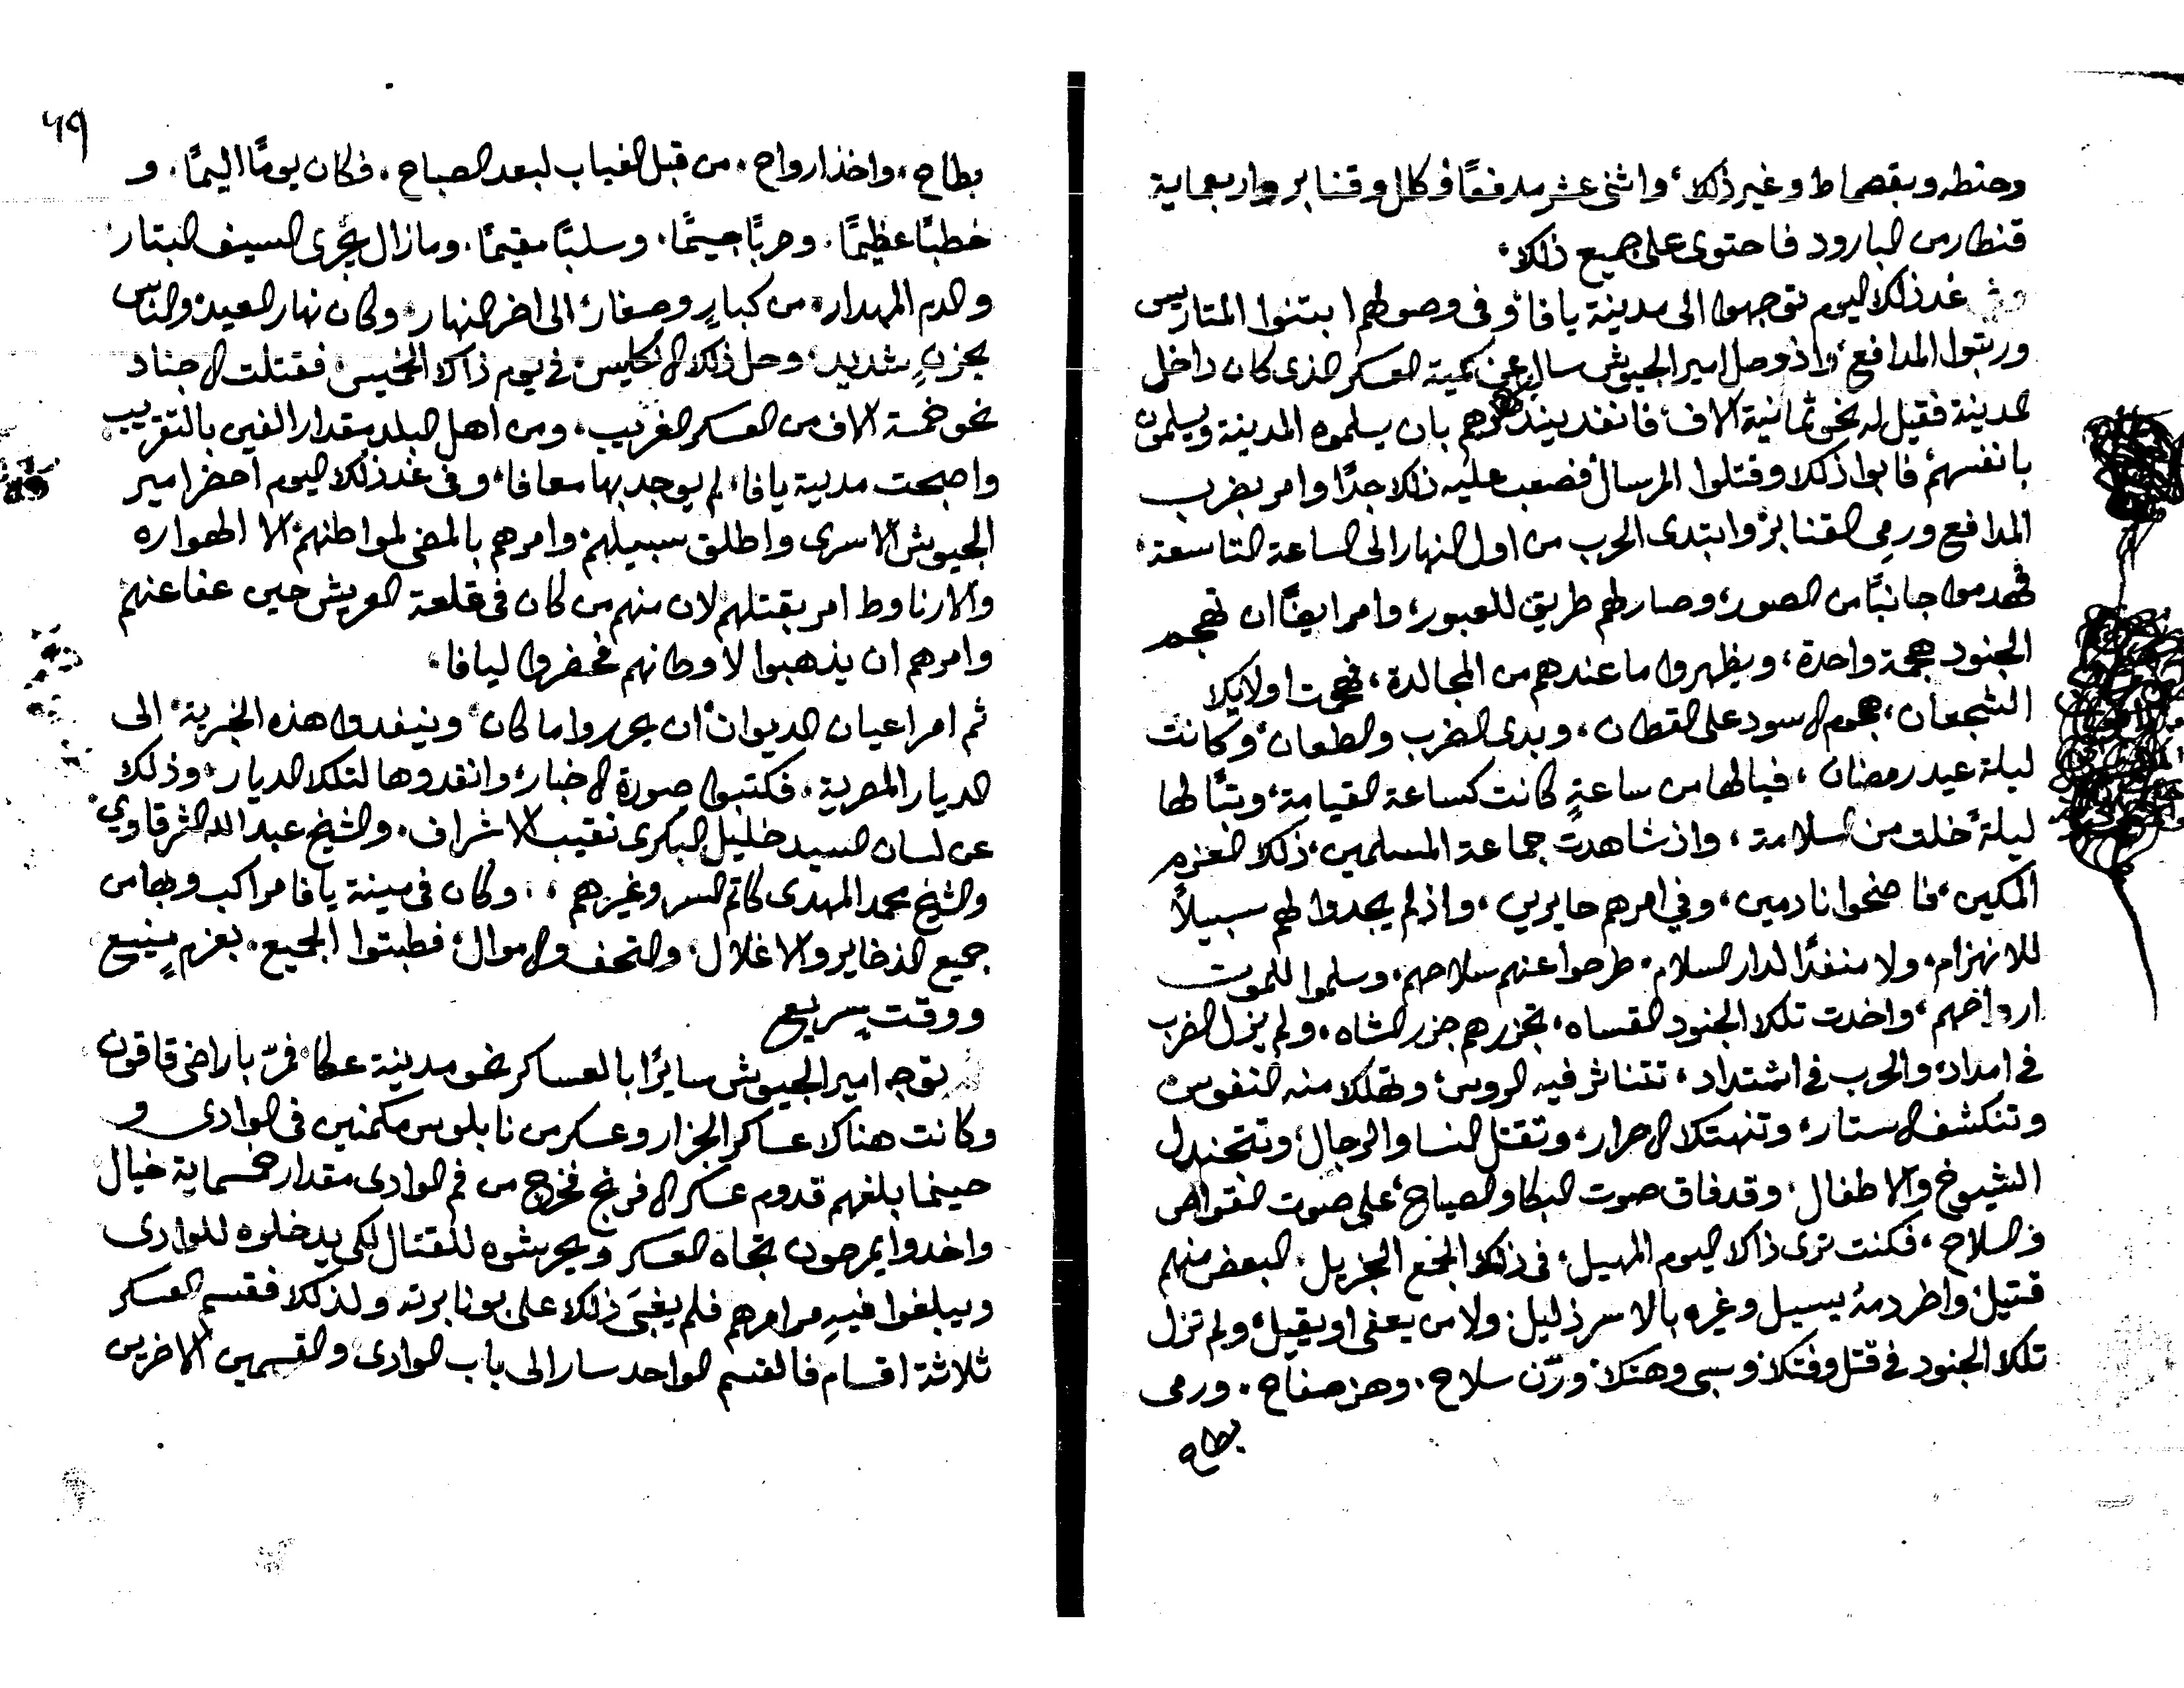 وحنطه وبقصماط وغير ذلك، واثنى عشر مدفعًا وكلل وقنابر واربعماية
قنطار من البارود فاحتوى على جميع ذلك.
غد ذلك اليوم توجهوا الى مدينة يافا، وفى وصولهم ابتنوا المتاريس
وربتوا المدافع، واذ وصل امير الجيوش سال عن كمية العسكر الذى كان داخل
المدينة فقيل له نحو ثمانية الاف، فانفد بان يسلموه المدينة ويسلمون
بانفسهم، فابوا ذلك وقتلوا المرسال، فصعب عليه ذلك جدًا وامر بضرب
المدافع ورمى القنابر، وابتدى الحرب من اول النهار الى الساعة التاسعة،
فهدموا جانبًا من الصور، وصار لهم طريق للعبور، وامر ايضًا ان تهجم
الجنود هجمة واحدة، ويظهروا ما عندهم من المجالدة، فهجمت اولايك
الشجعان، هجوم الاسود على القطان، وبدى الضرب والطعان، وكانت
ليلة عيد رمضان، فيا لها من ساعةٍ كانت كساعة القيامة، وتبًا لها
ليلةً خلت من السلامة، واذ شاهدت جماعة المسلمين، ذلك العزم
المكين، فاضحوا نادمين، وفي امرهم حايرين، واذ لم يجدوا لهم سبيلاً
للانهزام، ولا منفدًا لدار السلام، طرحوا عنهم سلاحهم، وسلموا للموت
ارواحهم، واخدت تلك الجنود القساه، تجزرهم جزر الشاه، ولم يزل الضرب
فى امداد، والحرب فى اشتداد، تتناثر فيه الروس، وتهلك منه النفوس،
وتنكشف الاستار، وتنهتك الاحرار، وتقتل النسا والرجال، وتتجندل
الشيوخ والاطفال، وقد فاق صوت البكا والصياح، على صوت القواص
والسلاح، فكنت ترى ذاك اليوم المهيل، فى ذلك الجمع الجزيل، البعض منهم
قتيل، واطر دمهُ يسيل، وغيره بالاسر ذليل، ولا من يعفى او يقيل، ولم تزل
تلك الجنود فى قتل وفتك، وسبى وهتك، ورّن سلاح، وهز صفاح، ورمى
بطاح
٦٩
بطاح، واخذ ارواح، من قبل الغياب لبعد الصباح، فكان يومًا اليمًا، و
خطبًا عظيمًا، وحربًا جسيمًا، وسلبًا مقيمًا، وما زال يجرى السيف البتار
والدم المهدار، من كبارٍ وصغار، الى اخر النهار، وكان نهار العيد، والناس
بحزنٍ شديد، وحل ذلك الانكليس، فى يوم ذاك الخميس، فقتلت الاجناد
نحو خمسة الاف من العسكر الغريب، ومن اهل البلد مقدار الفين بالتقريب،
واصبحت مدينة يافا، لم يوجد بها معافا، وفى غد ذلك اليوم احضر امير
الجيوش الاسرى واطلق سبيلهم، وامرهم بالمضى لمواطنهم، الا الهواره
والارناوط امر بقتلهم لان منهم من كان فى قلعة العريش حين عفا عنهم
وامرهم ان يذهبوا لاوطانهم فحضروا ليافا.
ثم امر اعيان الديوان، ان يحرروا ما كان، وينفدوا هذه الخبرية، الى
الديار المصرية، فكتبوا صورة الاخبار، وانفدوها لتلك الديار، وذلك
عن لسان السيد خليل البكرى نقيب الاشراف، والشيخ عبد الله الشرقاوي،
والشيخ محمد المهدى كاتم السر وغيرهم، وكان فى مينة يافا مراكب وبها من
جميع الذخاير والاغلال، والتحف والاموال، فطبتوا الجميع، بعزمٍ منيع
ووقت سريع
توجه امير الجيوش سائرًا بالعساكر نحو مدينة عكا، فمرّ باراضى قاقون
وكانت هناك عساكر الجزار وعسكر من نابلوس مكمنين فى الوادى و
حينما بلغهم قدوم عسكر الافرنج فخرج من فم الوادى مقدار خمسماية خيال
واخدوا يمرحون تجاه العسكر ويحربشوه للقتال لكى يدخلوه للوادى
ويبلغوا فيهِ مرامهم فلم يغبَى ذلك على بونابرته ولذلك فقسم العسكر
ثلاثة اقسام فالقسم الواحد سار الى باب الوادى والقسمين الاخرين